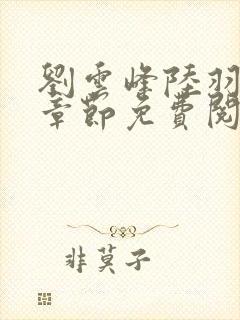 劉雲峰陸羽
章節免費閱
非莫子